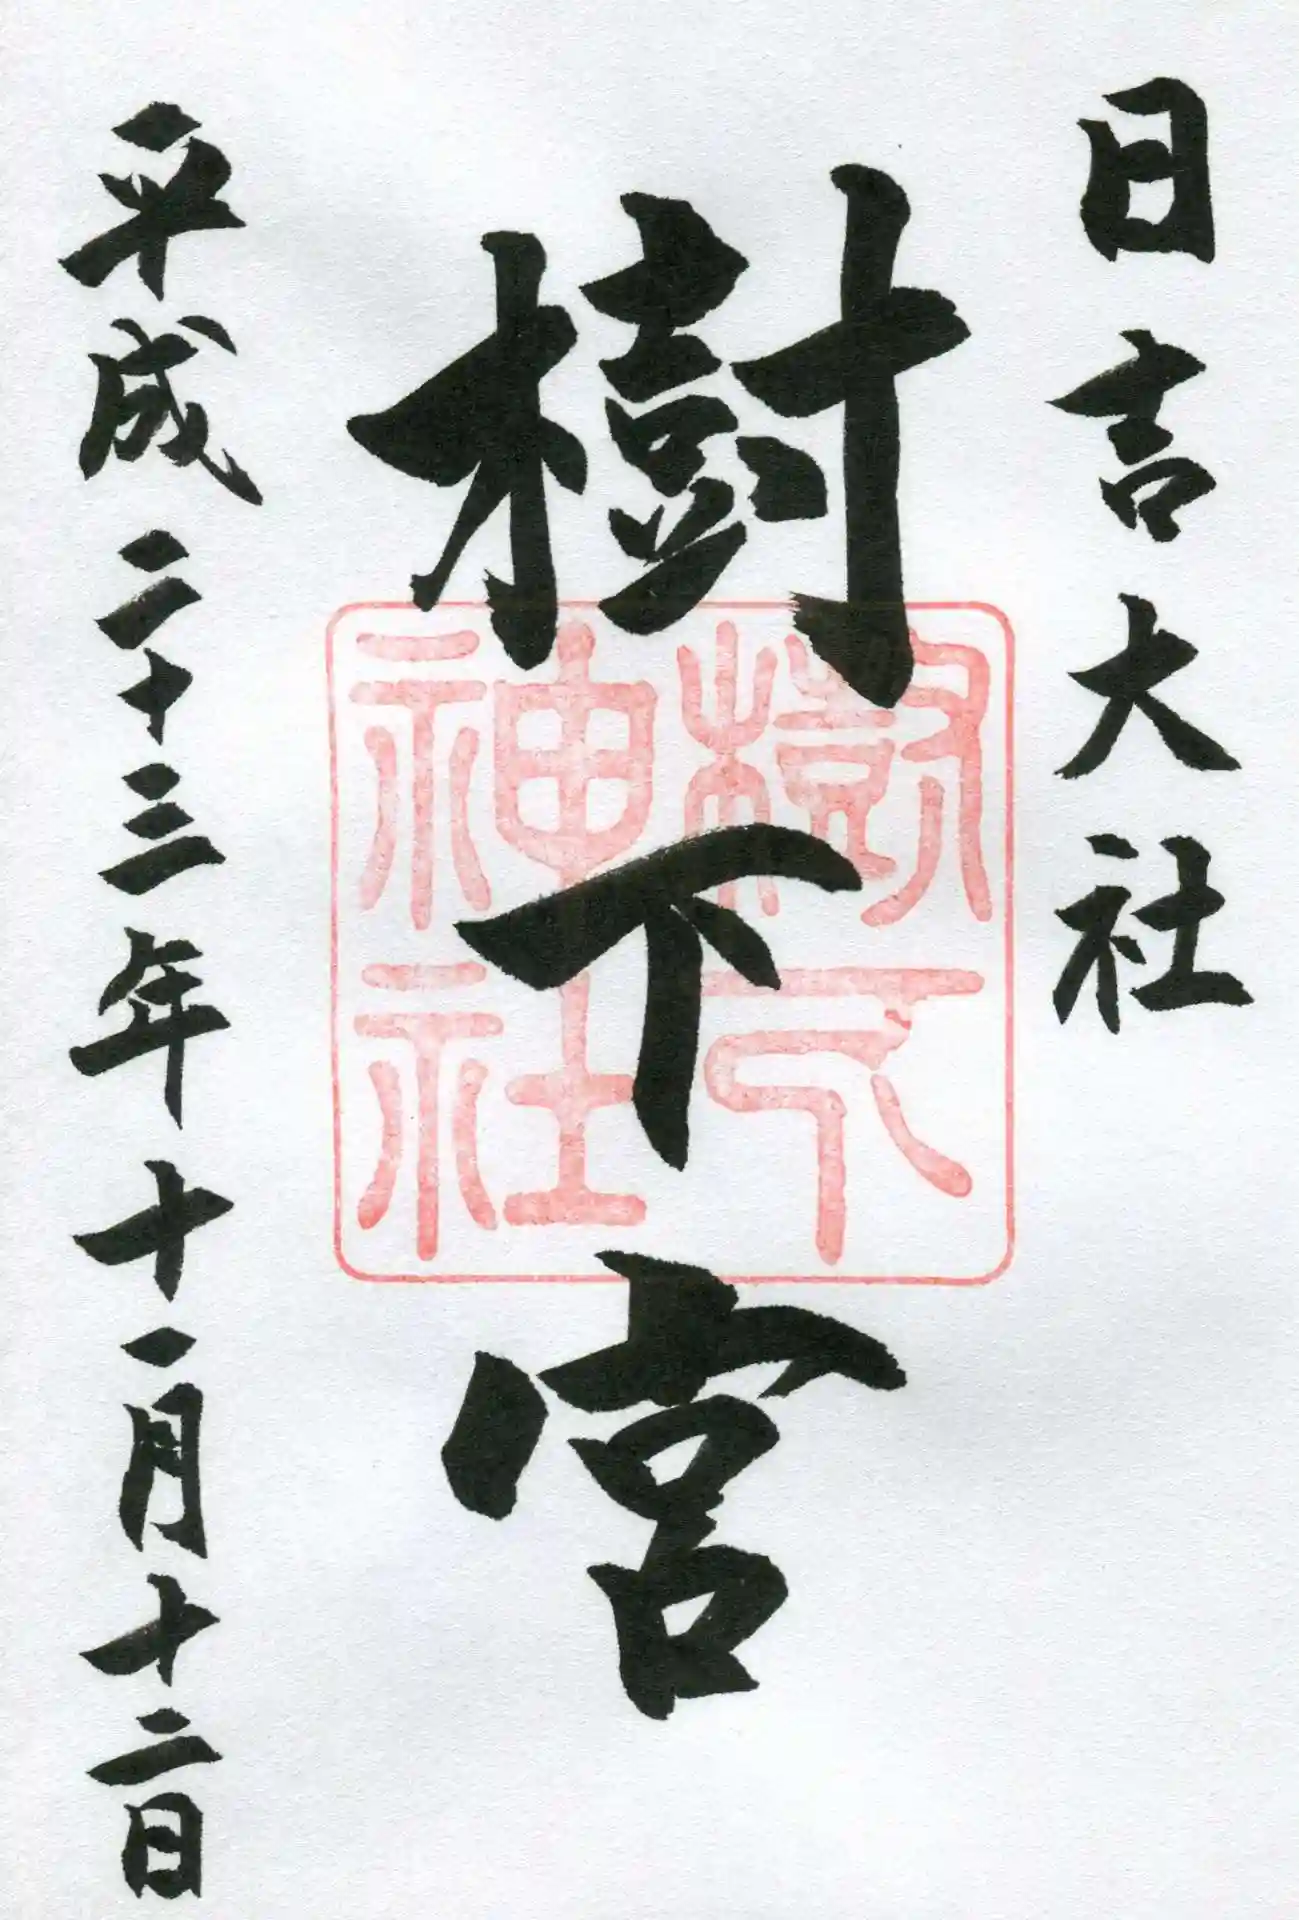 日吉大社
樹下宮
樹下
神社
平成二十三年十一月十二日